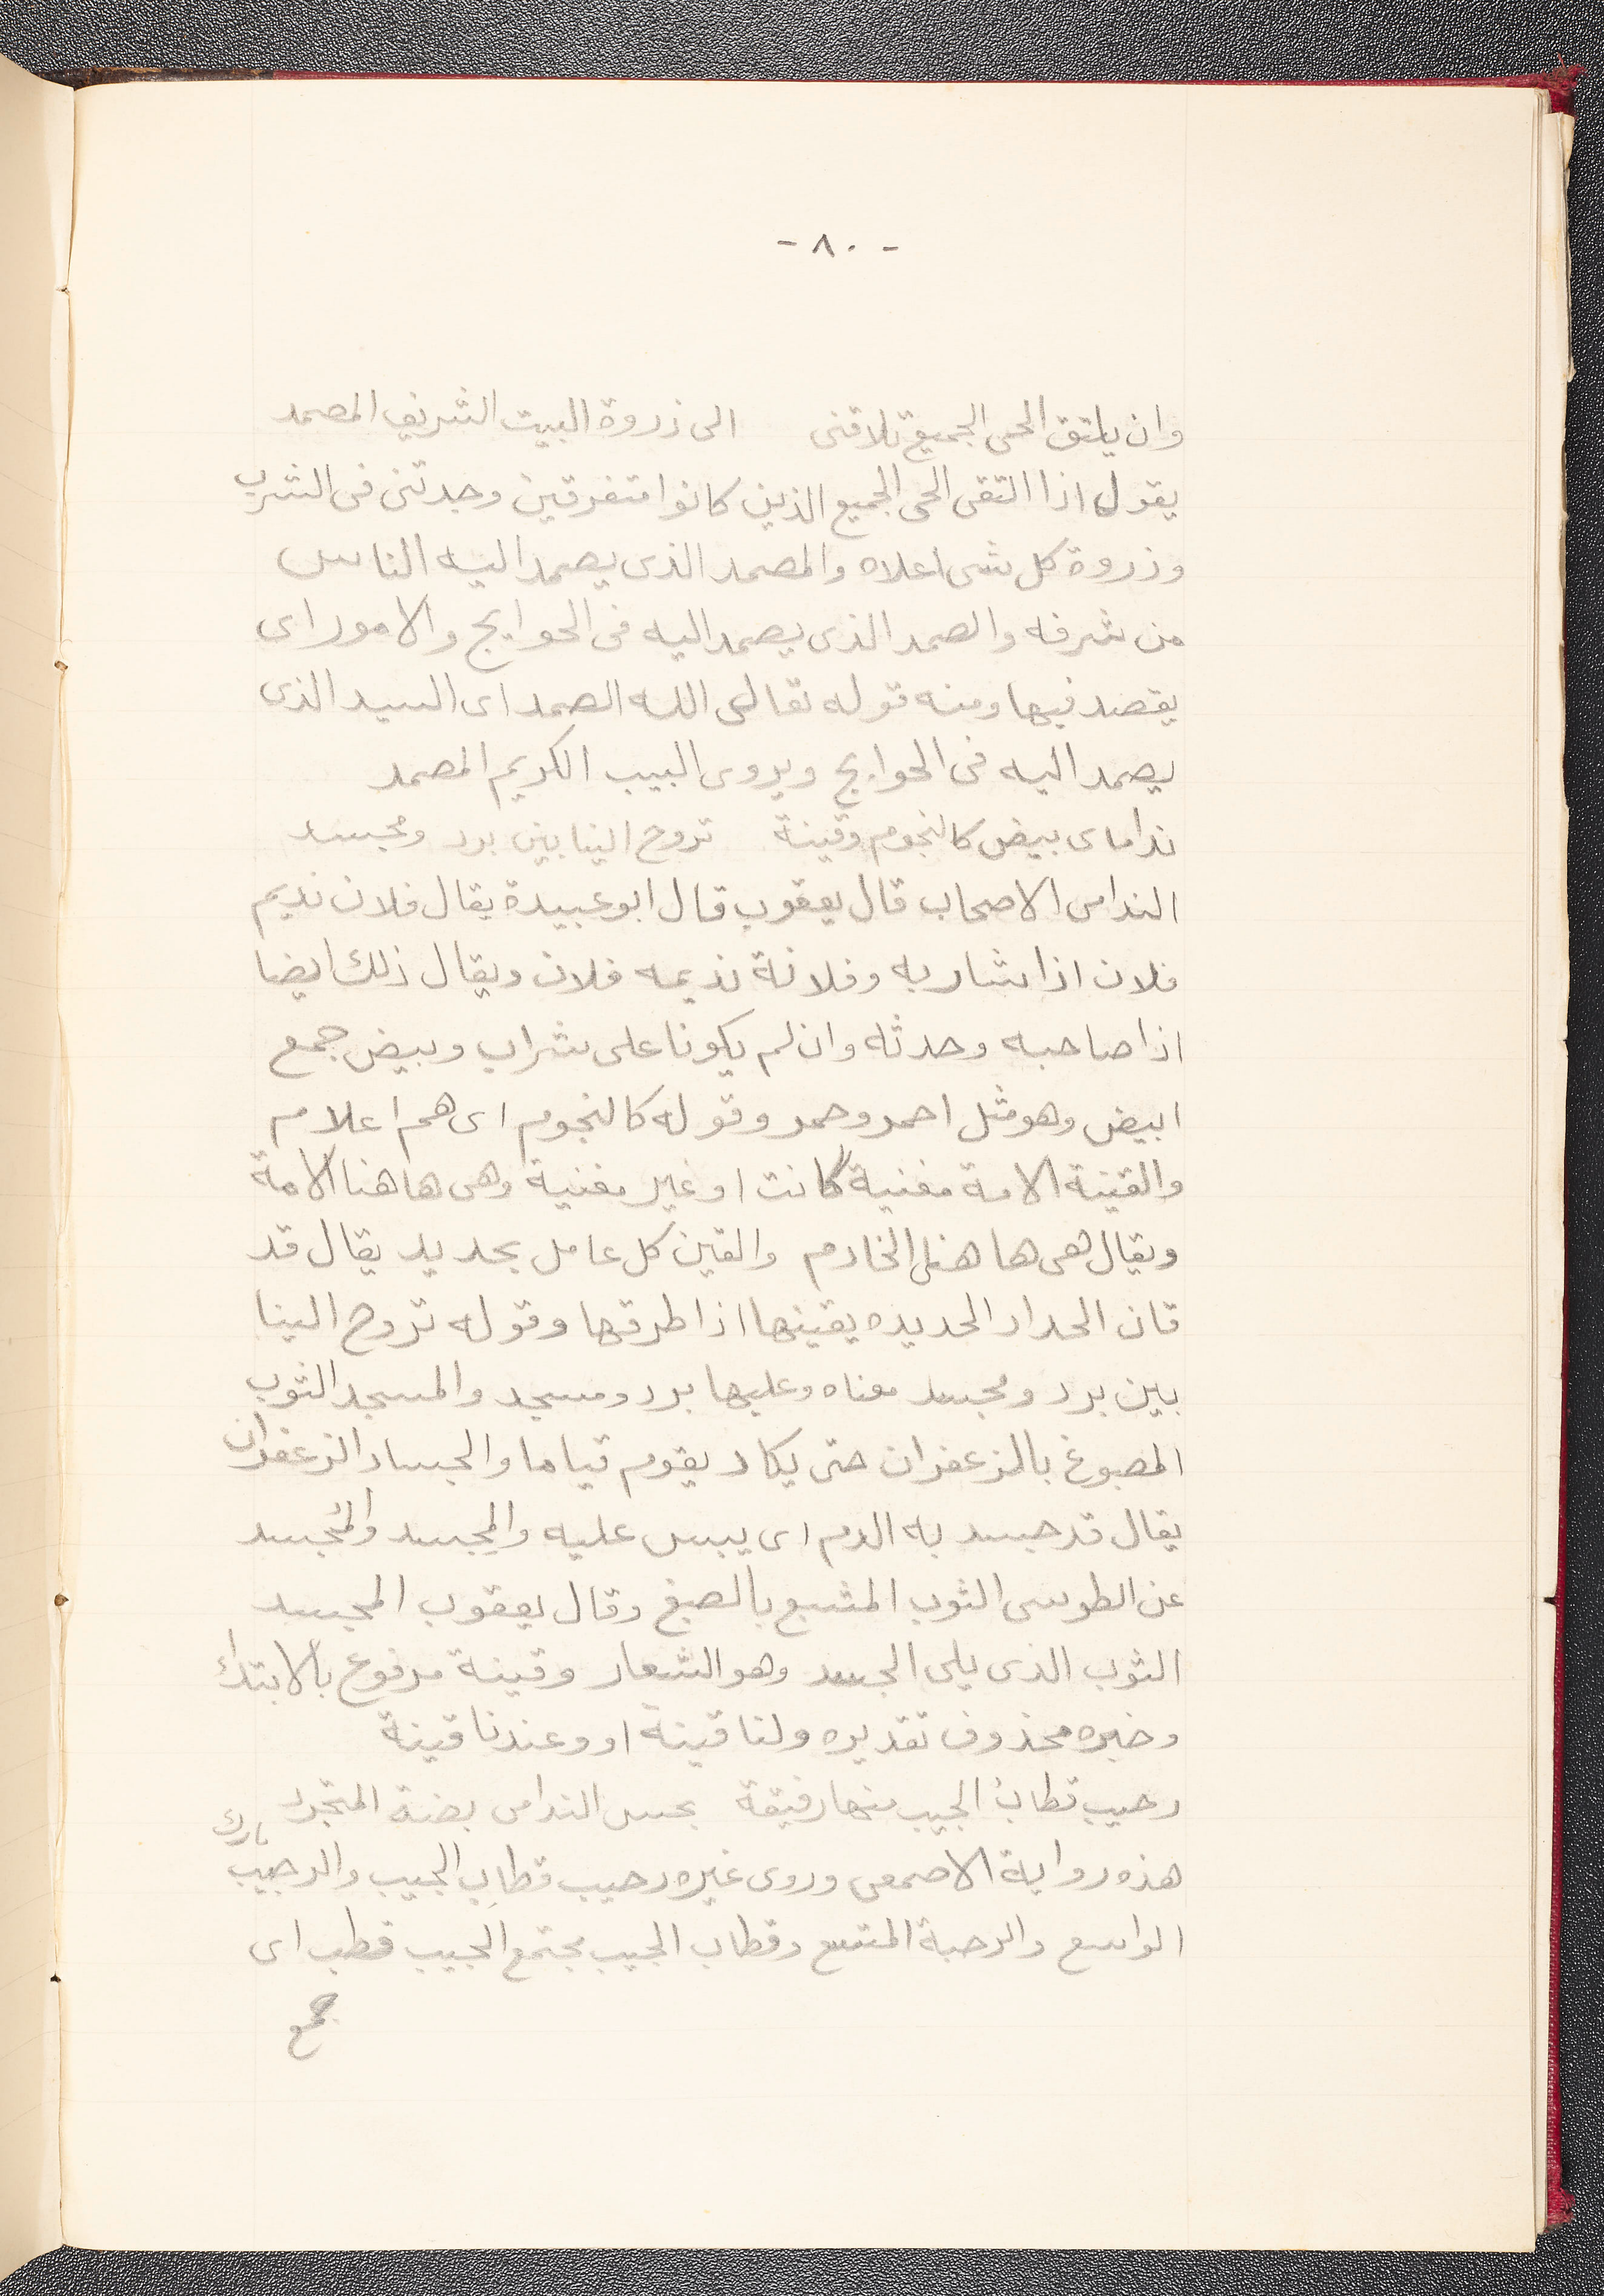 - ٨٠ -
وان يلتق الحى الجميع تلاقنى الى ذروة البيت الشريف المصمد
يقول اذا التقى الحى الجميع الذين كانوا متفرقين وجدتنى فى الشرف
وذروة كل شى اعلاه والمصمد الذى يصمد اليه الناس
من شرفه والصمد الذى يصمد اليه فى الحوايج والامور اى
يقصد فيها ومنه قوله تعالى الله الصمد اى السيد الذى
يصمد اليه فى الحوايج ويروى البيب الكريم المصمد
نداماى بيض كالنجوم وقينة تروح الينا بين برد ومجسد
الندامى الاصحاب قال يعقوب قال ابو عبيدة يقال فلان نديم
فلان اذا شاربه وفلانة نديمه فلان ويقال ذلك ايضا
اذا صاحبه وحدثه وان لم يكونا على شراب وبيض جمع
ابيض وهو مثل احمر وحمر وقوله كالنجوم اى هم اعلام
والقينة الامة مغنية كانت او غير مغنية وهى هاهنا الامة
ويقال هى هاهنا الخادم والقين كل عامل بحديد يقال قد
قان الحداد الحديده يقينها اذا طرقها وقوله تروح الينا
بين برد ومجسد معناه وعليها برد ومسجد والمسجد الثوب
المصبوغ بالزعفران حتى يكاد يقوم قياما والجساد الزعفران
يقال قد جسد به الدم اى يبس عليه والمِجسد والمُجسد
عن الطوسى الثوب المشبع بالصبغ وقال يعقوب المجسد
الثوب الذى يلى الجسد وهو الشعار وقينة مرفوع بالابتداء
وخبره محذوف تقديره ولنا قينة او وعندنا قينة
رحيب قطابُ الجيب منها رفيقة بجس الندامى بضة المتجرد
هذه رواية الاصمعى وروى غيره رحيب قطابِ الجيب والرحيب
الواسع والرحبة المتسع وقطاب الجيب مجتمع الجيب قطب اى
جمع